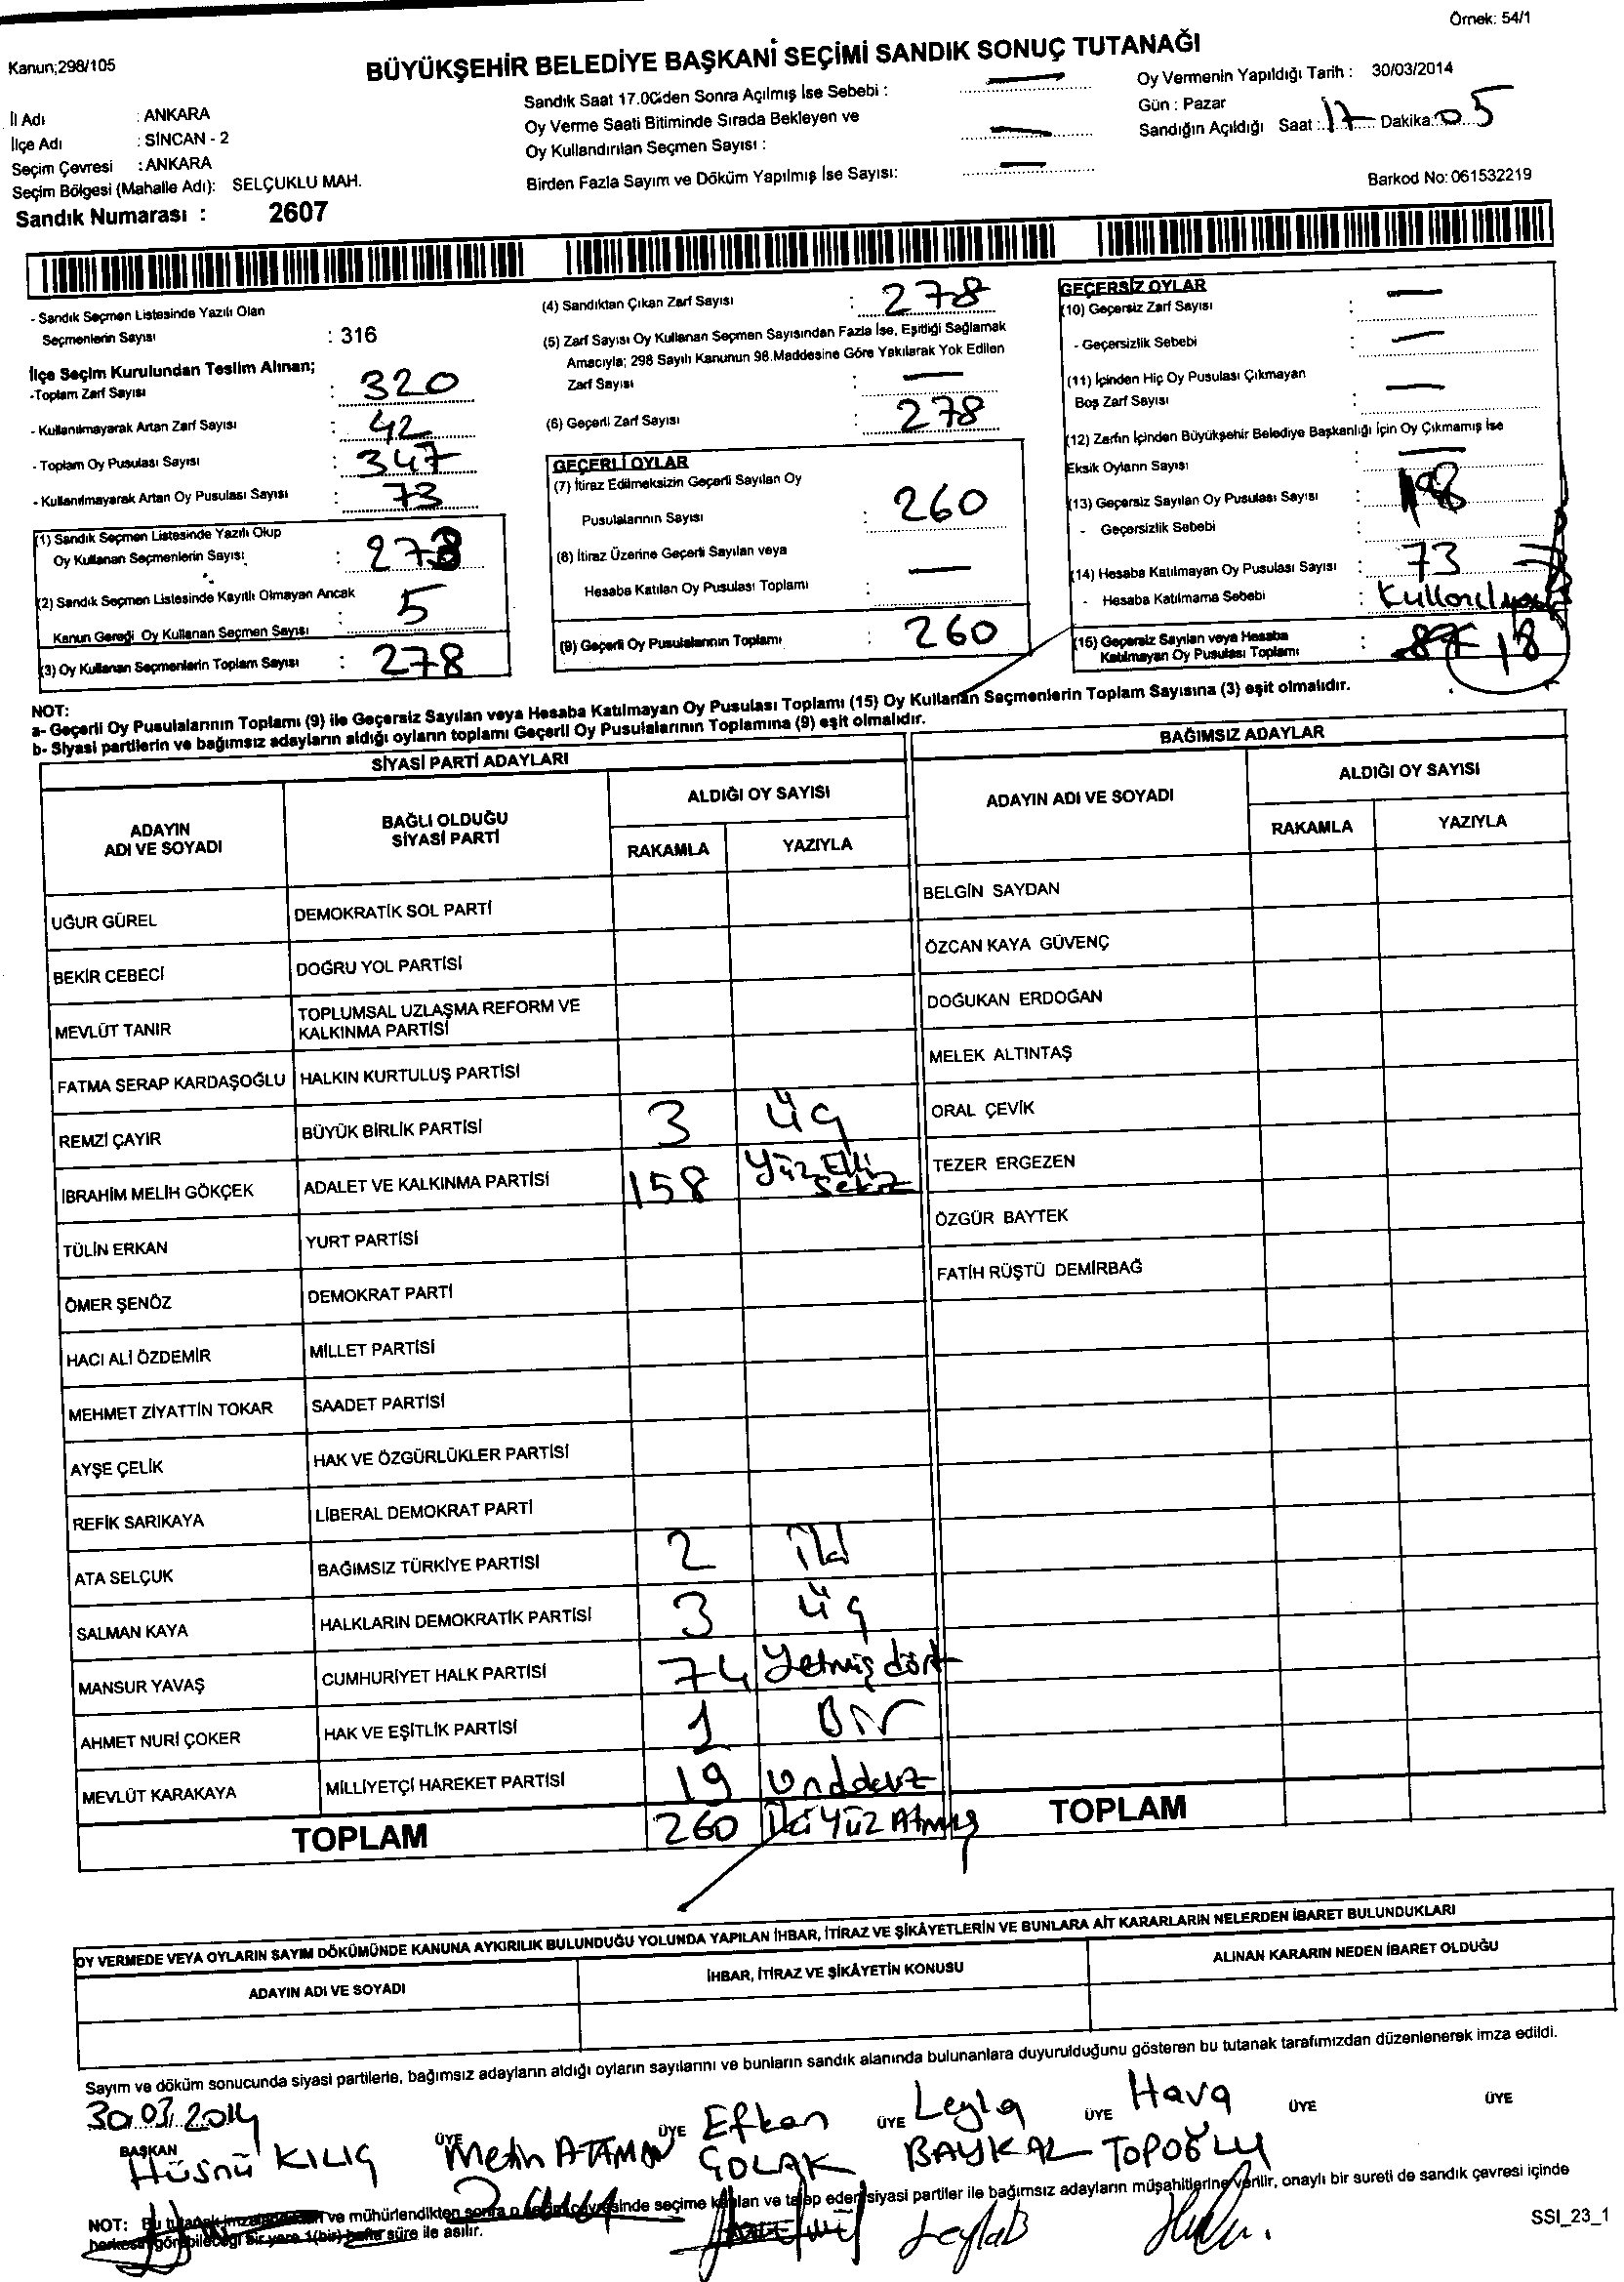 Örnek: 54/1
Kanun;298/105
BÜYÜKŞEHİR BELEDİYE BAŞKANİ SEÇİMİ SANDIK SONUÇ TUTANAĞI
İl Adı : ANKARA
İlçe Adı : SİNCAN - 2
Seçim Çevresi : ANKARA
Seçim Bölgesi (Mahalle Adı): SELÇUKLU MAH.
Sandık Numarası : 2607
Sandık Saat 17.00'den Sonra Açılmış İse Sebebi : —
Oy Verme Saati Bitiminde Sırada Bekleyen ve
Oy Kullandırılan Seçmen Sayısı : —
Birden Fazla Sayım ve Döküm Yapılmış İse Sayısı: —
Oy Vermenin Yapıldığı Tarih : 30/03/2014
Gün : Pazar
Sandığın Açıldığı Saat : 17 Dakika: 05
Barkod No: 061532219
- Sandık Seçmen Listesinde Yazılı Olan
Seçmenlerin Sayısı : 316
İlçe Seçim Kurulundan Teslim Alınan;
-Toplam Zarf Sayısı : 320
- Kullanılmayarak Artan Zarf Sayısı : 42
- Toplam Oy Pusulası Sayısı : 347
- Kullanılmayarak Artan Oy Pusulası Sayısı : 73
(1) Sandık Seçmen Listesinde Yazılı Olup
Oy Kullanan Seçmenlerin Sayısı :
(2) Sandık Seçmen Listesinde Kayıtlı Olmayan Ancak
Kanun Gereği Oy Kullanan Seçmen Sayısı : 5
(3) Oy Kullanan Seçmenlerin Toplam Sayısı : 278
(4) Sandıktan Çıkan Zarf Sayısı : 278
(5) Zarf Sayısı Oy Kullanan Seçmen Sayısından Fazla İse, Eşitliği Sağlamak
Amacıyla; 298 Sayılı Kanunun 98.Maddesine Göre Yakılarak Yok Edilen
Zarf Sayısı : —
(6) Geçerli Zarf Sayısı : 278
GEÇERLİ OYLAR
(7) İtiraz Edilmeksizin Geçerli Sayılan Oy
Pusulalarının Sayısı : 260
(8) İtiraz Üzerine Geçerli Sayılan veya
Hesaba Katılan Oy Pusulası Toplamı : —
(9) Geçerli Oy Pusulalarının Toplamı : 260
GEÇERSİZ OYLAR
(10) Geçersiz Zarf Sayısı : —
- Geçersizlik Sebebi : —
(11) İçinden Hiç Oy Pusulası Çıkmayan
Boş Zarf Sayısı : —
(12) Zarfın İçinden Büyükşehir Belediye Başkanlığı İçin Oy Çıkmamış İse
Eksik Oyların Sayısı : —
(13) Geçersiz Sayılan Oy Pusulası Sayısı :
- Geçersizlik Sebebi :
(14) Hesaba Katılmayan Oy Pusulası Sayısı : 73
- Hesaba Katılmama Sebebi :
(15) Geçersiz Sayılan veya Hesaba
Katılmayan Oy Pusulası Toplamı : 18
NOT:
a- Geçerli Oy Pusulalarının Toplamı (9) ile Geçersiz Sayılan veya Hesaba Katılmayan Oy Pusulası Toplamı (15) Oy Kullanan Seçmenlerin Toplam Sayısına (3) eşit olmalıdır.
b- Siyasi partilerin ve bağımsız adayların aldığı oyların toplamı Geçerli Oy Pusulalarının Toplamına (9) eşit olmalıdır.
SİYASİ PARTİ ADAYLARI
ADAYIN ADI VE SOYADI BAĞLI OLDUĞU SİYASİ PARTİ ALDIĞI OY SAYISI
RAKAMLA YAZIYLA
UĞUR GÜREL DEMOKRATİK SOL PARTİ
BEKİR CEBECİ DOĞRU YOL PARTİSİ
MEVLÜT TANIR TOPLUMSAL UZLAŞMA REFORM VE KALKINMA PARTİSİ
FATMA SERAP KARDAŞOĞLU HALKIN KURTULUŞ PARTİSİ
REMZİ ÇAYIR BÜYÜK BİRLİK PARTİSİ 3 üç
İBRAHİM MELİH GÖKÇEK ADALET VE KALKINMA PARTİSİ 158 Yüz Elli Sekiz
TÜLİN ERKAN YURT PARTİSİ
ÖMER ŞENÖZ DEMOKRAT PARTİ
HACI ALİ ÖZDEMİR MİLLET PARTİSİ
MEHMET ZİYATTİN TOKAR SAADET PARTİSİ
AYŞE ÇELİK HAK VE ÖZGÜRLÜKLER PARTİSİ
REFİK SARIKAYA LİBERAL DEMOKRAT PARTİ
ATA SELÇUK BAĞIMSIZ TÜRKİYE PARTİSİ 2 iki
SALMAN KAYA HALKLARIN DEMOKRATİK PARTİSİ 3 üç
MANSUR YAVAŞ CUMHURİYET HALK PARTİSİ 74 Yetmiş dört
AHMET NURİ ÇOKER HAK VE EŞİTLİK PARTİSİ 1 Bir
MEVLÜT KARAKAYA MİLLİYETÇİ HAREKET PARTİSİ 19
TOPLAM 260 İki Yüz Atmış
BAĞIMSIZ ADAYLAR
ADAYIN ADI VE SOYADI ALDIĞI OY SAYISI
RAKAMLA YAZIYLA
BELGİN SAYDAN
ÖZCAN KAYA GÜVENÇ
DOĞUKAN ERDOĞAN
MELEK ALTINTAŞ
ORAL ÇEVİK
TEZER ERGEZEN
ÖZGÜR BAYTEK
FATİH RÜŞTÜ DEMİRBAĞ
TOPLAM
OY VERMEDE VEYA OYLARIN SAYIM DÖKÜMÜNDE KANUNA AYKIRILIK BULUNDUĞU YOLUNDA YAPILAN İHBAR, İTİRAZ VE ŞİKÂYETLERİN VE BUNLARA AİT KARARLARIN NELERDEN İBARET BULUNDUKLARI
ADAYIN ADI VE SOYADI İHBAR, İTİRAZ VE ŞİKÂYETİN KONUSU ALINAN KARARIN NEDEN İBARET OLDUĞU
Sayım ve döküm sonucunda siyasi partilerle, bağımsız adayların aldığı oyların sayılarını ve bunların sandık alanında bulunanlara duyurulduğunu gösteren bu tutanak tarafımızdan düzenlenerek imza edildi.
30.03.2014
BAŞKAN ÜYE ÜYE ÜYE ÜYE ÜYE ÜYE
Hüsnü KILIÇ Metin ATAMAN Efkan ÇOLAK Leyla BAYKAL Hava TOPOĞLU
NOT: Bu tutanak imzalandıktan ve mühürlendikten sonra o seçim çevresinde seçime katılan ve talep eden siyasi partiler ile bağımsız adayların müşahitlerine verilir, onaylı bir sureti de sandık çevresi içinde
herkesin görebileceği bir yere 1(bir) hafta süre ile asılır.
SSI_23_1